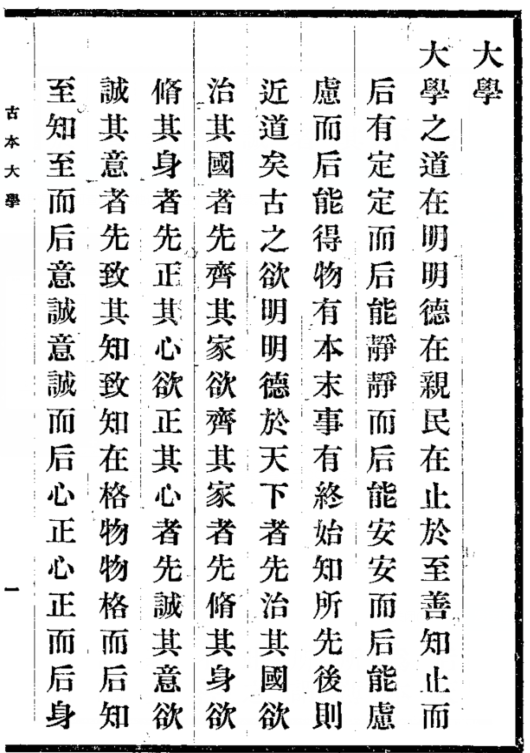 大學
大學之道在明明德在親民在止於至善知止而
后有定定而后能靜靜而后能安安而后能慮
慮而后能得物有本末事有終始知所先後則
近道矣古之欲明明德於天下者先治其國欲
治其國者先齊其家欲齊其家者先脩其身欲
脩其身者先正其心欲正其心者先誠其意欲
誠其意者先致其知致知在格物物格而后知
至知至而后意誠意誠而后心正心正而后身
古本大學
一